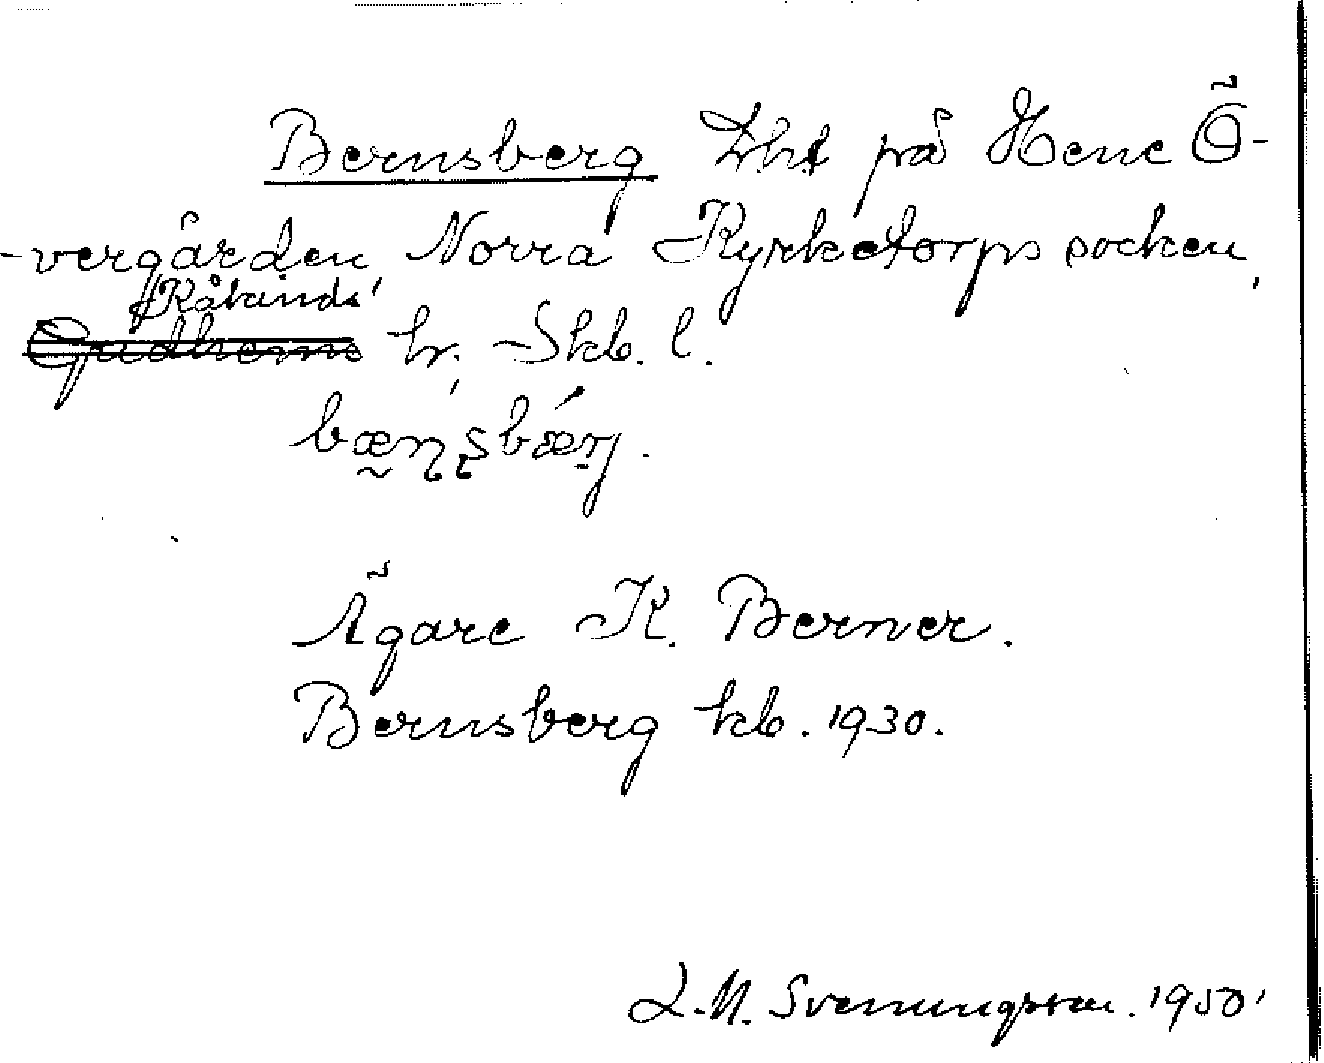 Bernsberg Lht på Hene Ö-
-vergården, Norra Kyrketorps socken,
Kåkinds
Gudhems hr. Skb. l.
bæṇʂbæ̀ŋ.
Ägare K. Berner.
Bernsberg kb. 1930.
L. M. Svenungsson. 1950